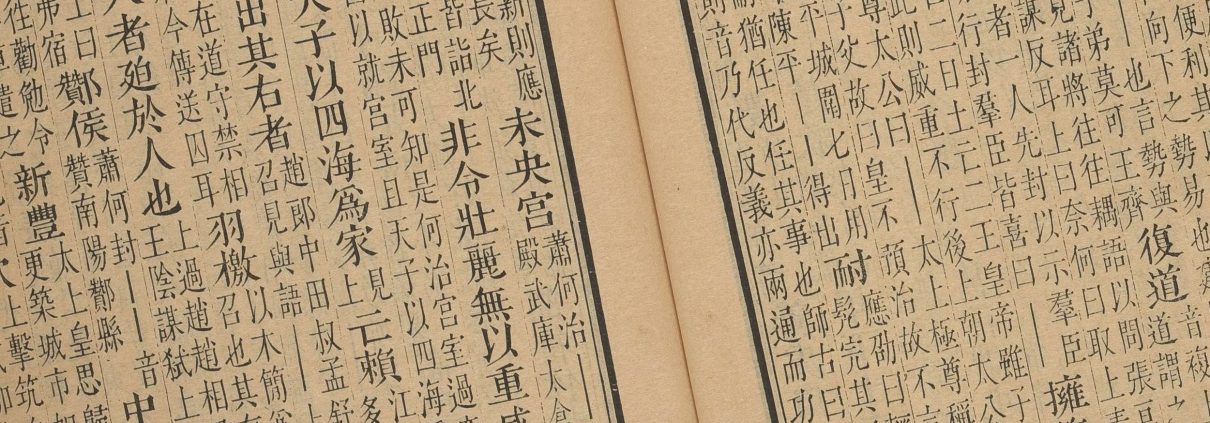 便利其
向下之勢易也
也言勢與
子弟莫可王齊
復道
音複
道謂之
見諸將往往耦語以問張良
謀反耳上曰奈何曰取上素
者一人先封以示羣臣
擁
行封羣臣皆喜曰
召二日土亡二王皇帝雖子
此則威重不行後上朝太公
尊太公曰
太上極尊稱
子父故曰皇不預治故不言
平城圍七日用
陳平
得出
耐
應劭曰
髡完其
猶任也任其事也師古曰
則音乃代反義亦兩通而功
新則應
長矣
未央宮
蕭何治
殿武庫太倉
皆詣北
正門
非令壯麗無以重威
敗未可知是何治宮室過
以就宮室且天子以四海
天子以四海爲家
見
上
亡賴
江
多
出其右者
趙郎中田叔孟舒
召見與語
在道守禁相
今傳送囚耳
羽檄
以木簡爲
召也其有
者迫於人也
上過趙趙相
王陰謀弒上
上曰
弗宿
酇侯
蕭何封
音
贊南陽酇縣
中
往勸勉令
遣之
新豐
太上皇思歸
更築城市如
上擊筑